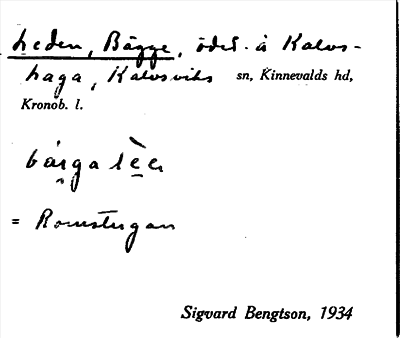 heden, Bägge, öde. å Kalvs-
haga, Kalvsviks sn, Kinnevalds hd,
Kronob. l.
= Romstugan
Sigvard Bengtson, 1934